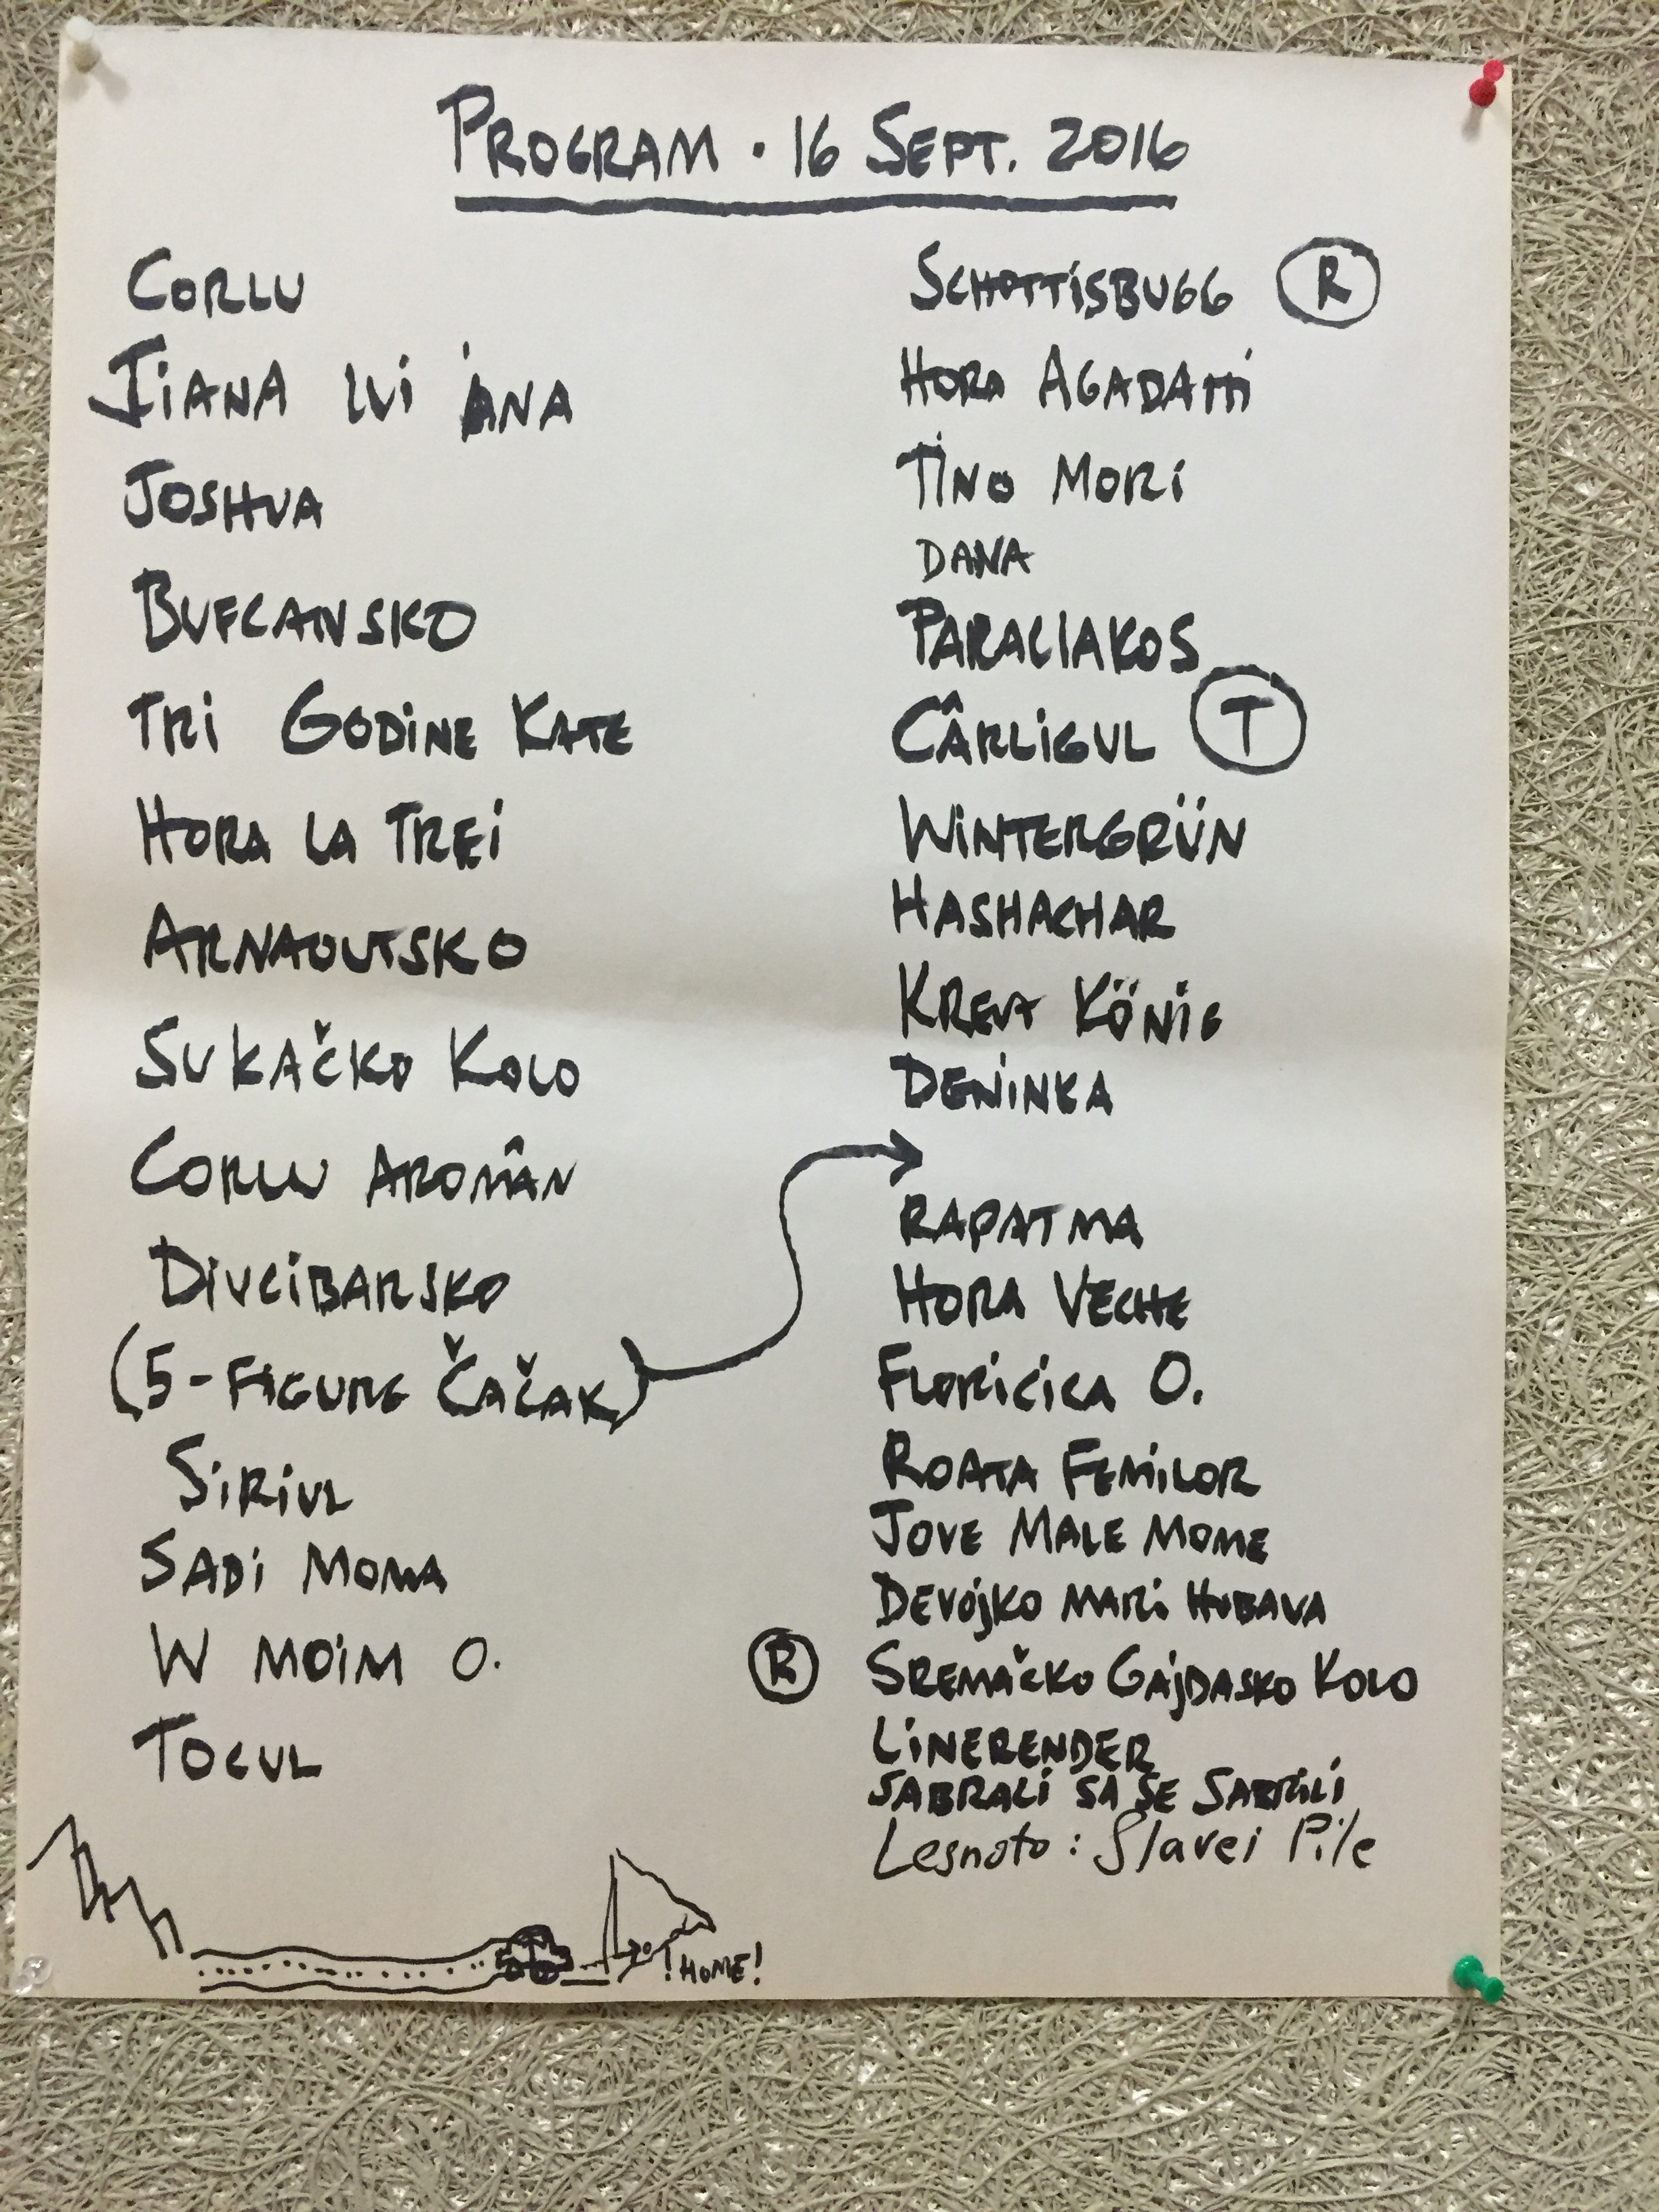 PROGRAM · 16 SEPT. 2016
CORLU
JIANA LUI ANA
JOSHUA
BUFCANSKO
TRI GODINE KATE
HORA LA TREI
ARNAOUTSKO
SUKAČKO KOLO
CORLU AROMÂN
DIVCIBARSKO
(5-FIGURE ČAČAK)
SIRIUL
SADI MOMA
W MOIM O.
TOCUL
!HOME!
SCHOTTISBUGG R
HORA AGADATTI
TINO MORI
DANA
PARALIAKOS
CÂRLIGUL T
WINTERGRÜN
HASHACHAR
KÖNIG
DENINKA
RAPATMA
HORA VECHE
FLORICICA O.
ROATA FEMILOR
JOVE MALE MOME
DEVOJKO MARI HUBAVA
R SREMAČKO GAJDASKO KOLO
LINERENDER
SABRALI SA SE SABRALI
Lesnoto: Slavei Pile